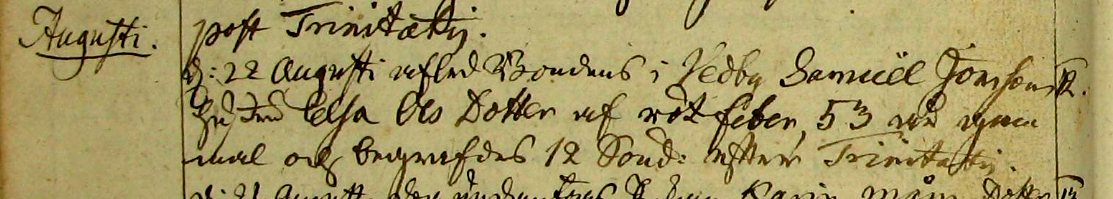 Augusti.
post Trinitatis.
d: 22 Augusti afled Bondens i Hedby Samuel Jonsons
Hustru Elsa Ols Dotter af röt feber, 53 åhr gam
mal och begrafdes 12 Sönd: efter Trinitatis.
Karin Dotter